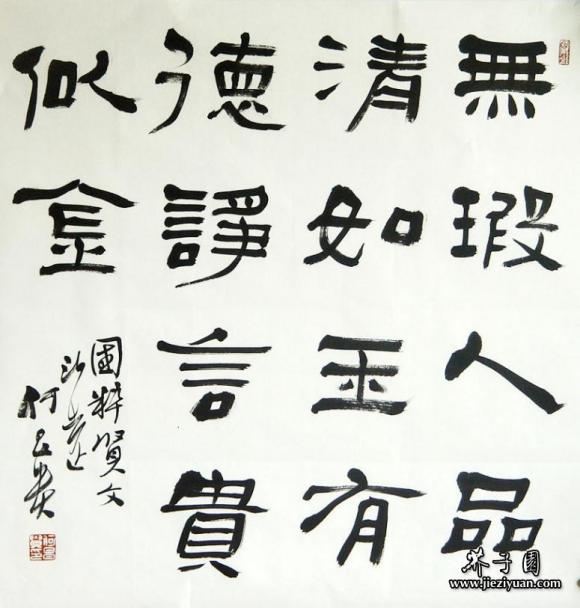 無瑕人品
清如玉有
德諍言貴
似金
國粹賢文
何
芥子園
www.jieziyuan.com